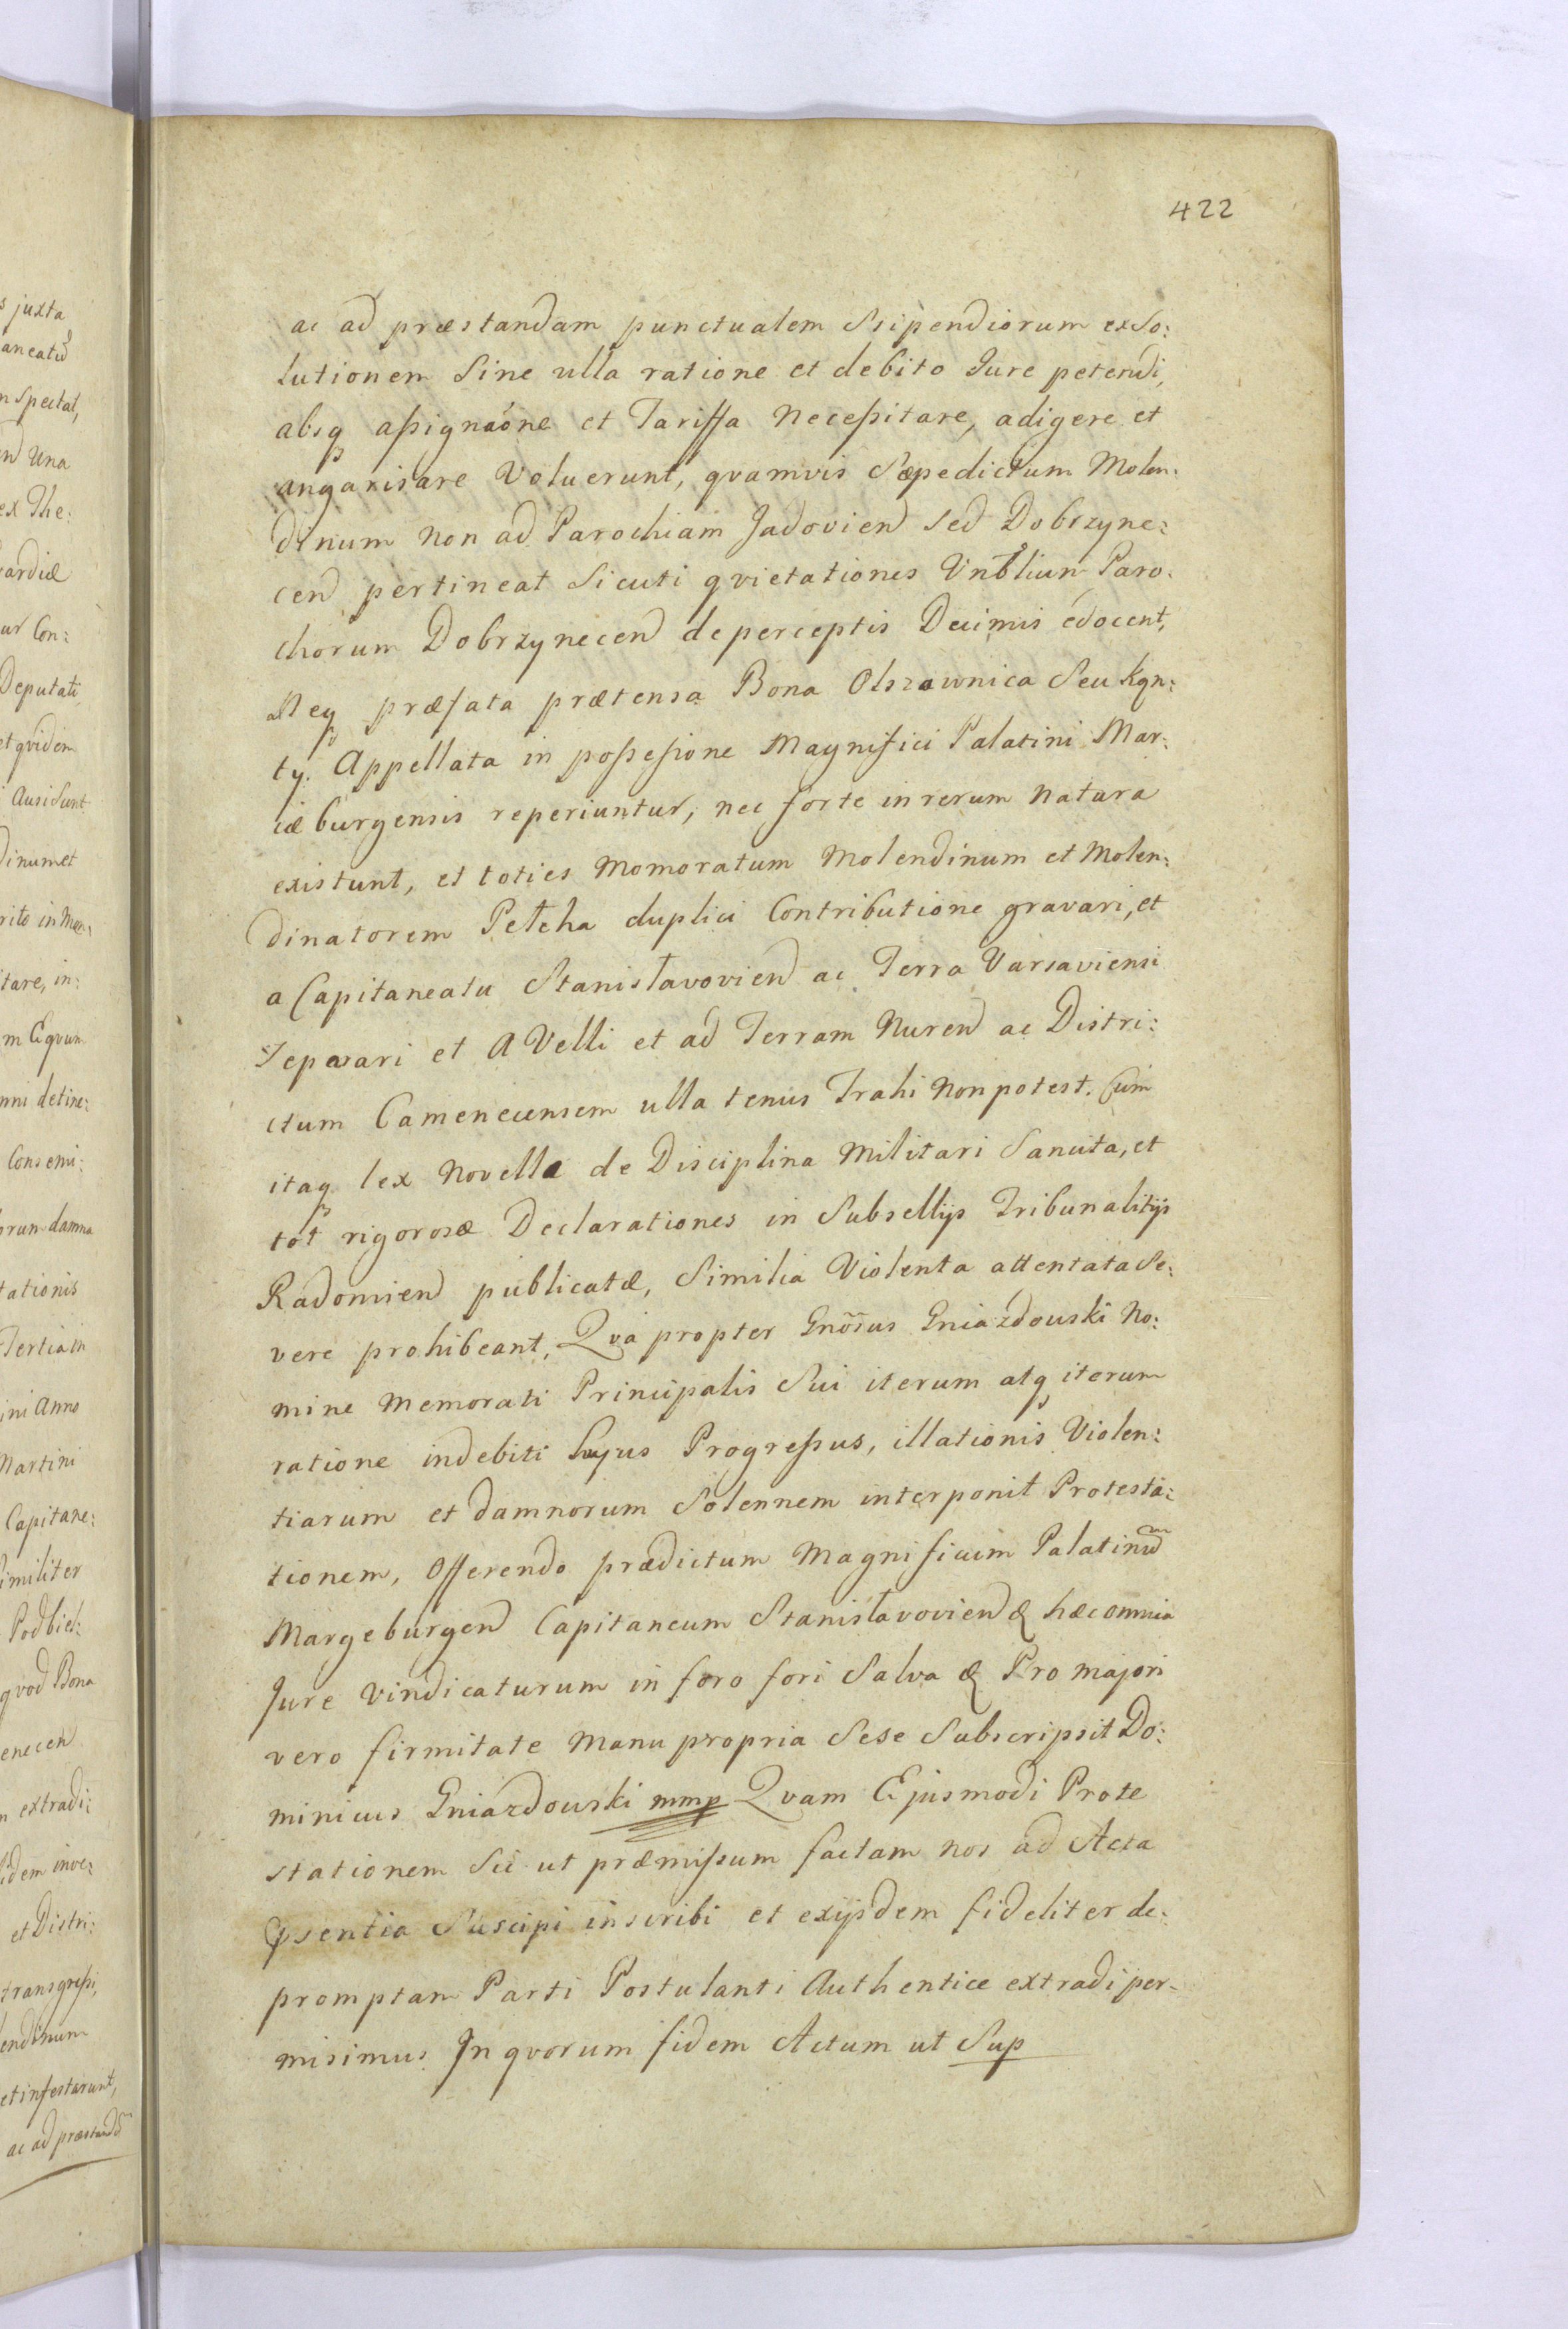 422
s juxta
n Spectat,
Una
ex The:
ardiæ
Con:
Deputati
et qvidem
Ausi Sunt
dinum et
rito in
tare, in:
m Eqvum
nni detine:
Consemi:
orum damna
tationis
Tertia in
ini Anno
Martini
Capitane:
Similiter
Podbiel:
qvod Bona
enecen
n extradi:
idem inve:
et Distri:
transgreßi,
endinum
et infestarunt,
ac ad præstand
ac ad præstandam punctualem Ssipendiorum exSo:
lutionem Sine ulla ratione et debito Jure petendi,
absq aßignaone et Tariffa Neceßitare, adigere et
angarisare Voluerunt, qvamvis Sæpedictum Molen:
dinum non ad Parochiam Jadovien Sed Dobrzyne:
cen pertineat Sicuti qvietationes Vnblium Paro:
chorum Dobrzynecen de perceptis Decimis edocent,
Neq præfata prætensa Bona Olszownica Seu Kąn:
ty. Appellata in poßeßione Magnifici Palatini Mar:
iæburgensis reperiuntur, nec forte in rerum Natura
existunt, et toties Momoratum Molendinum et Molen:
dinatorem Pełcha duplici Contributione gravari, et
a Capitaneatu Stanisławovien ac Terra Varsaviensi
Separari et A Velli et ad Terram Nuren ac Distri:
ctum Camenecensem ulla tenus Trahi Non potest. Cum
itaq lex Novella de Disciplina Militari Sancita, et
tot rigorosæ Declarationes in Subsellijs Tribunalitijs
Radomien publicatæ, Similia Violenta attentata Se:
vere prohibeant, Qva propter Gnosus Gniazdouski No:
mine Memorati Principalis Sui iterum atq iterum
ratione indebiti hujus Progreßus, illationis Violen:
tiarum et damnorum Solennem interponit Protesta:
tionem, Offerendo prædictum Magnificum Palatinum
Margeburgen Capitaneum Stanisławovien & hæc omnia
Jure Vindicaturum in foro fori Salva & Pro majori
vero firmitate Manu propria Sese Subscripsit Do:
minicus Gniazdouski mmp Qvam Ejusmodi Prote
stationem Sic ut præmißum factam nos ad Acta
Psentia Suscipi inscribi et exijsdem fideliter de:
promptam Parti Postulanti Authentice extradi per-
misimus. In qvorum fidem Actum ut Sup